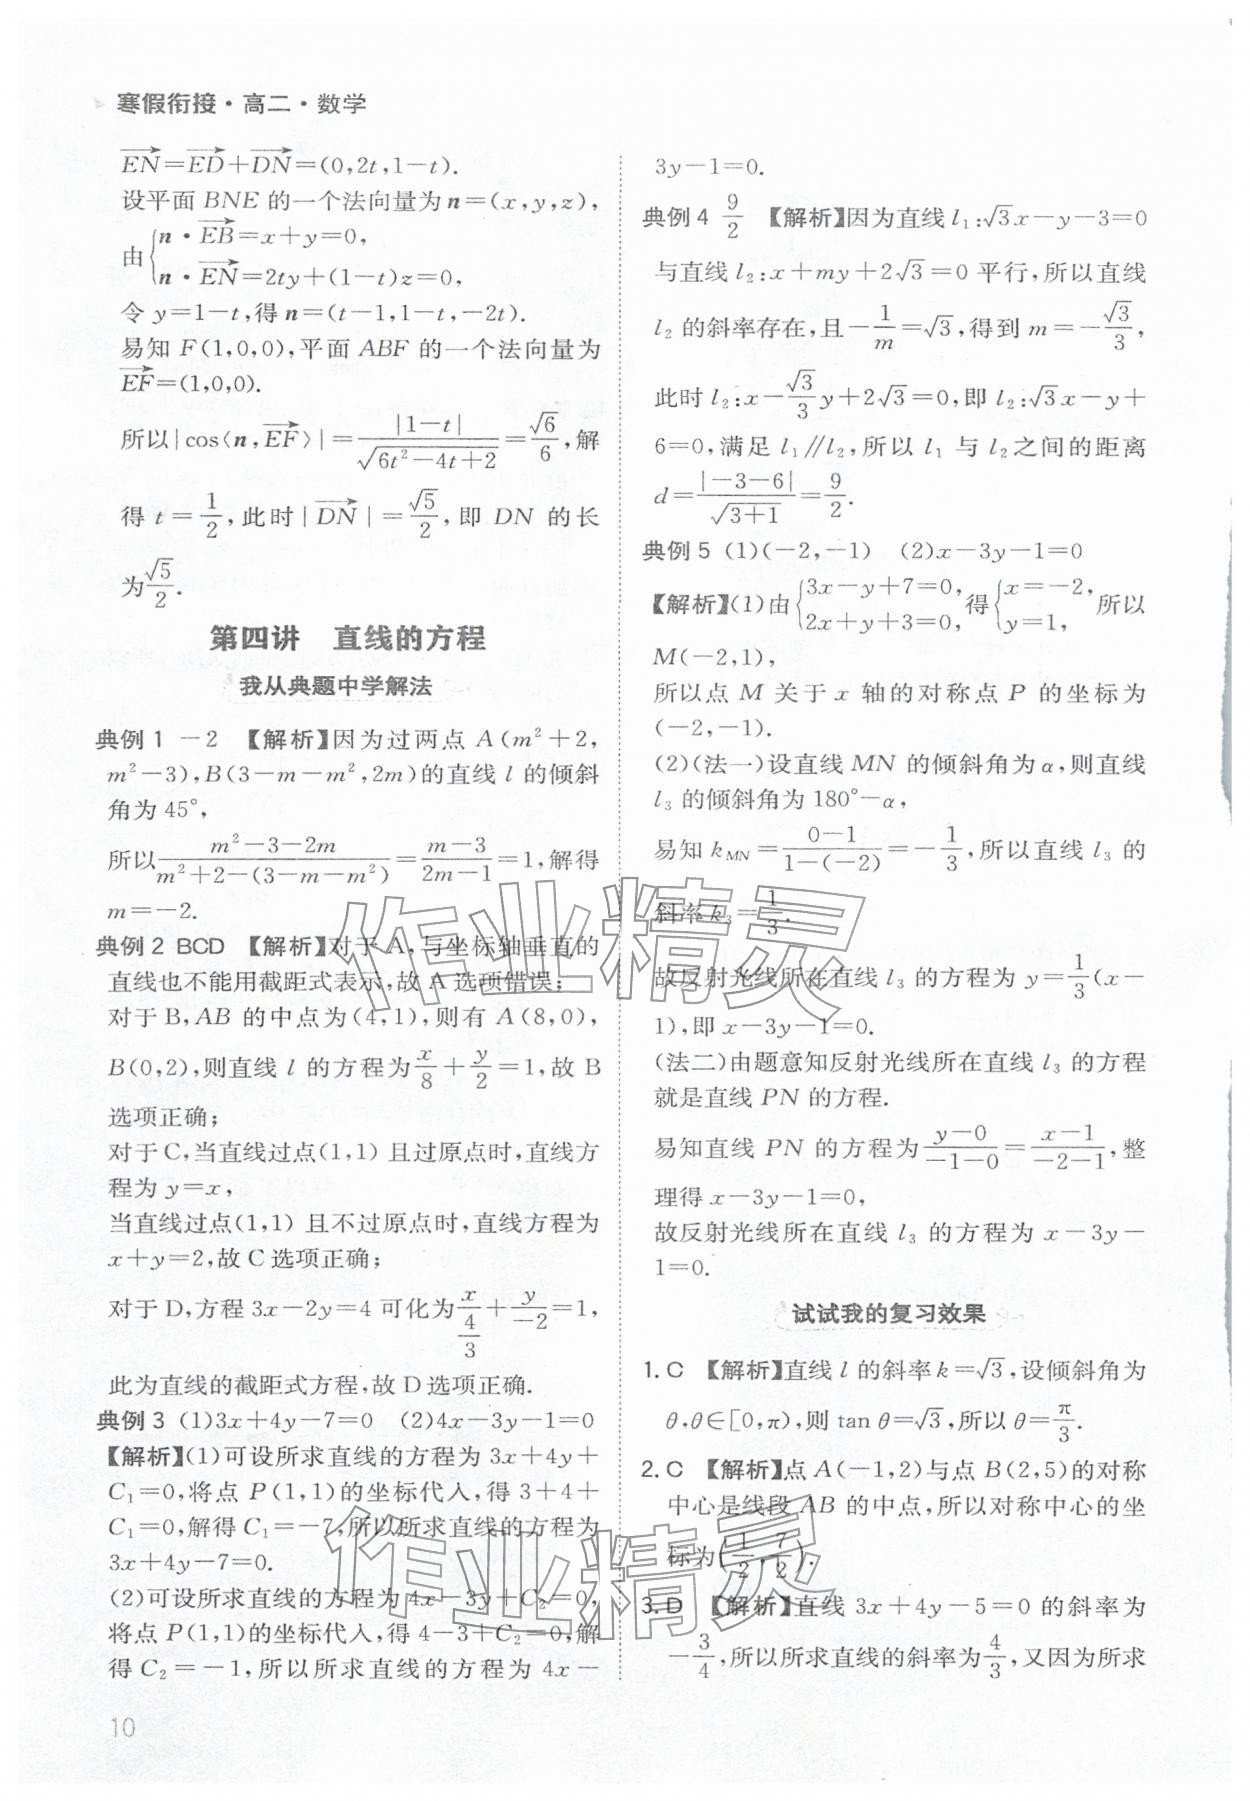 寒假衔接·高二·数学
$\overrightarrow{EN}=\overrightarrow{ED}+\overrightarrow{DN}=(0,2t,1-t)$.
设平面 BNE 的一个法向量为 n=(x,y,z),
由 $\begin{cases} n\cdot\overrightarrow{EB}=x+y=0, \\ n\cdot\overrightarrow{EN}=2ty+(1-t)z=0, \end{cases}$
令 y=1-t,得 n=(t-1,1-t,-2t).
易知 F(1,0,0),平面 ABF 的一个法向量为
$\overrightarrow{EF}=(1,0,0)$.
所以 $|\cos\langle n,\overrightarrow{EF}\rangle|=\frac{|1-t|}{\sqrt{6t^2-4t+2}}=\frac{\sqrt{6}}{6}$,解
得 $t=\frac{1}{2}$,此时 $|\overrightarrow{DN}|=\frac{\sqrt{5}}{2}$,即 DN 的长
为 $\frac{\sqrt{5}}{2}$.
第四讲 直线的方程
我从典题中学解法
典例 1 -2 【解析】因为过两点 $A(m^2+2,$
$m^2-3),B(3-m-m^2,2m)$ 的直线 l 的倾斜
角为 45°,
所以 $\frac{m^2-3-2m}{m^2+2-(3-m-m^2)}=\frac{m-3}{2m-1}=1$,解得
m=-2.
典例 2 BCD 【解析】对于 A,与坐标轴垂直的
直线也不能用截距式表示,故 A 选项错误;
对于 B,AB 的中点为(4,1),则有 A(8,0),
B(0,2),则直线 l 的方程为 $\frac{x}{8}+\frac{y}{2}=1$,故 B
选项正确;
对于 C,当直线过点(1,1)且过原点时,直线方
程为 y=x,
当直线过点(1,1)且不过原点时,直线方程为
x+y=2,故 C 选项正确;
对于 D,方程 3x-2y=4 可化为 $\frac{x}{\frac{4}{3}}+\frac{y}{-2}=1$,
此为直线的截距式方程,故 D 选项正确.
典例 3 (1)3x+4y-7=0 (2)4x-3y-1=0
【解析】(1)可设所求直线的方程为 3x+4y+
$C_1=0$,将点 P(1,1)的坐标代入,得 3+4+
$C_1=0$,解得 $C_1=-7$,所以所求直线的方程为
3x+4y-7=0.
(2)可设所求直线的方程为 $4x-3y+C_2=0$,
将点 P(1,1)的坐标代入,得 $4-3+C_2=0$,解
得 $C_2=-1$,所以所求直线的方程为 4x-
10
3y-1=0.
典例 4 $\frac{9}{2}$ 【解析】因为直线 $l_1:\sqrt{3}x-y-3=0$
与直线 $l_2:x+my+2\sqrt{3}=0$ 平行,所以直线
$l_2$ 的斜率存在,且 $-\frac{1}{m}=\sqrt{3}$,得到 $m=-\frac{\sqrt{3}}{3}$,
此时 $l_2:x-\frac{\sqrt{3}}{3}y+2\sqrt{3}=0$,即 $l_2:\sqrt{3}x-y+$
6=0,满足 $l_1//l_2$,所以 $l_1$ 与 $l_2$ 之间的距离
$d=\frac{|-3-6|}{\sqrt{3+1}}=\frac{9}{2}$.
典例 5 (1)(-2,-1) (2)x-3y-1=0
【解析】(1)由 $\begin{cases} 3x-y+7=0, \\ 2x+y+3=0, \end{cases}$ 得 $\begin{cases} x=-2, \\ y=1, \end{cases}$ 所以
M(-2,1),
所以点 M 关于 x 轴的对称点 P 的坐标为
(-2,-1).
(2)(法一)设直线 MN 的倾斜角为 α,则直线
$l_3$ 的倾斜角为 180°-α,
易知 $k_{MN}=\frac{0-1}{1-(-2)}=-\frac{1}{3}$,所以直线 $l_3$ 的
斜率 $k_3=\frac{1}{3}$.
故反射光线所在直线 $l_3$ 的方程为 $y=\frac{1}{3}(x-$
1),即 x-3y-1=0.
(法二)由题意知反射光线所在直线 $l_3$ 的方程
就是直线 PN 的方程.
易知直线 PN 的方程为 $\frac{y-0}{-1-0}=\frac{x-1}{-2-1}$,整
理得 x-3y-1=0,
故反射光线所在直线 $l_3$ 的方程为 x-3y-
1=0.
试试我的复习效果
1. C 【解析】直线 l 的斜率 $k=\sqrt{3}$,设倾斜角为
θ,θ∈[0,π),则 $\tan\theta=\sqrt{3}$,所以 $\theta=\frac{\pi}{3}$.
2. C 【解析】点 A(-1,2)与点 B(2,5)的对称
中心是线段 AB 的中点,所以对称中心的坐
标为 $\left(\frac{1}{2},\frac{7}{2}\right)$.
3. D 【解析】直线 3x+4y-5=0 的斜率为
$-\frac{3}{4}$,所以所求直线的斜率为 $\frac{4}{3}$,又因为所求
作业精灵
作业精灵